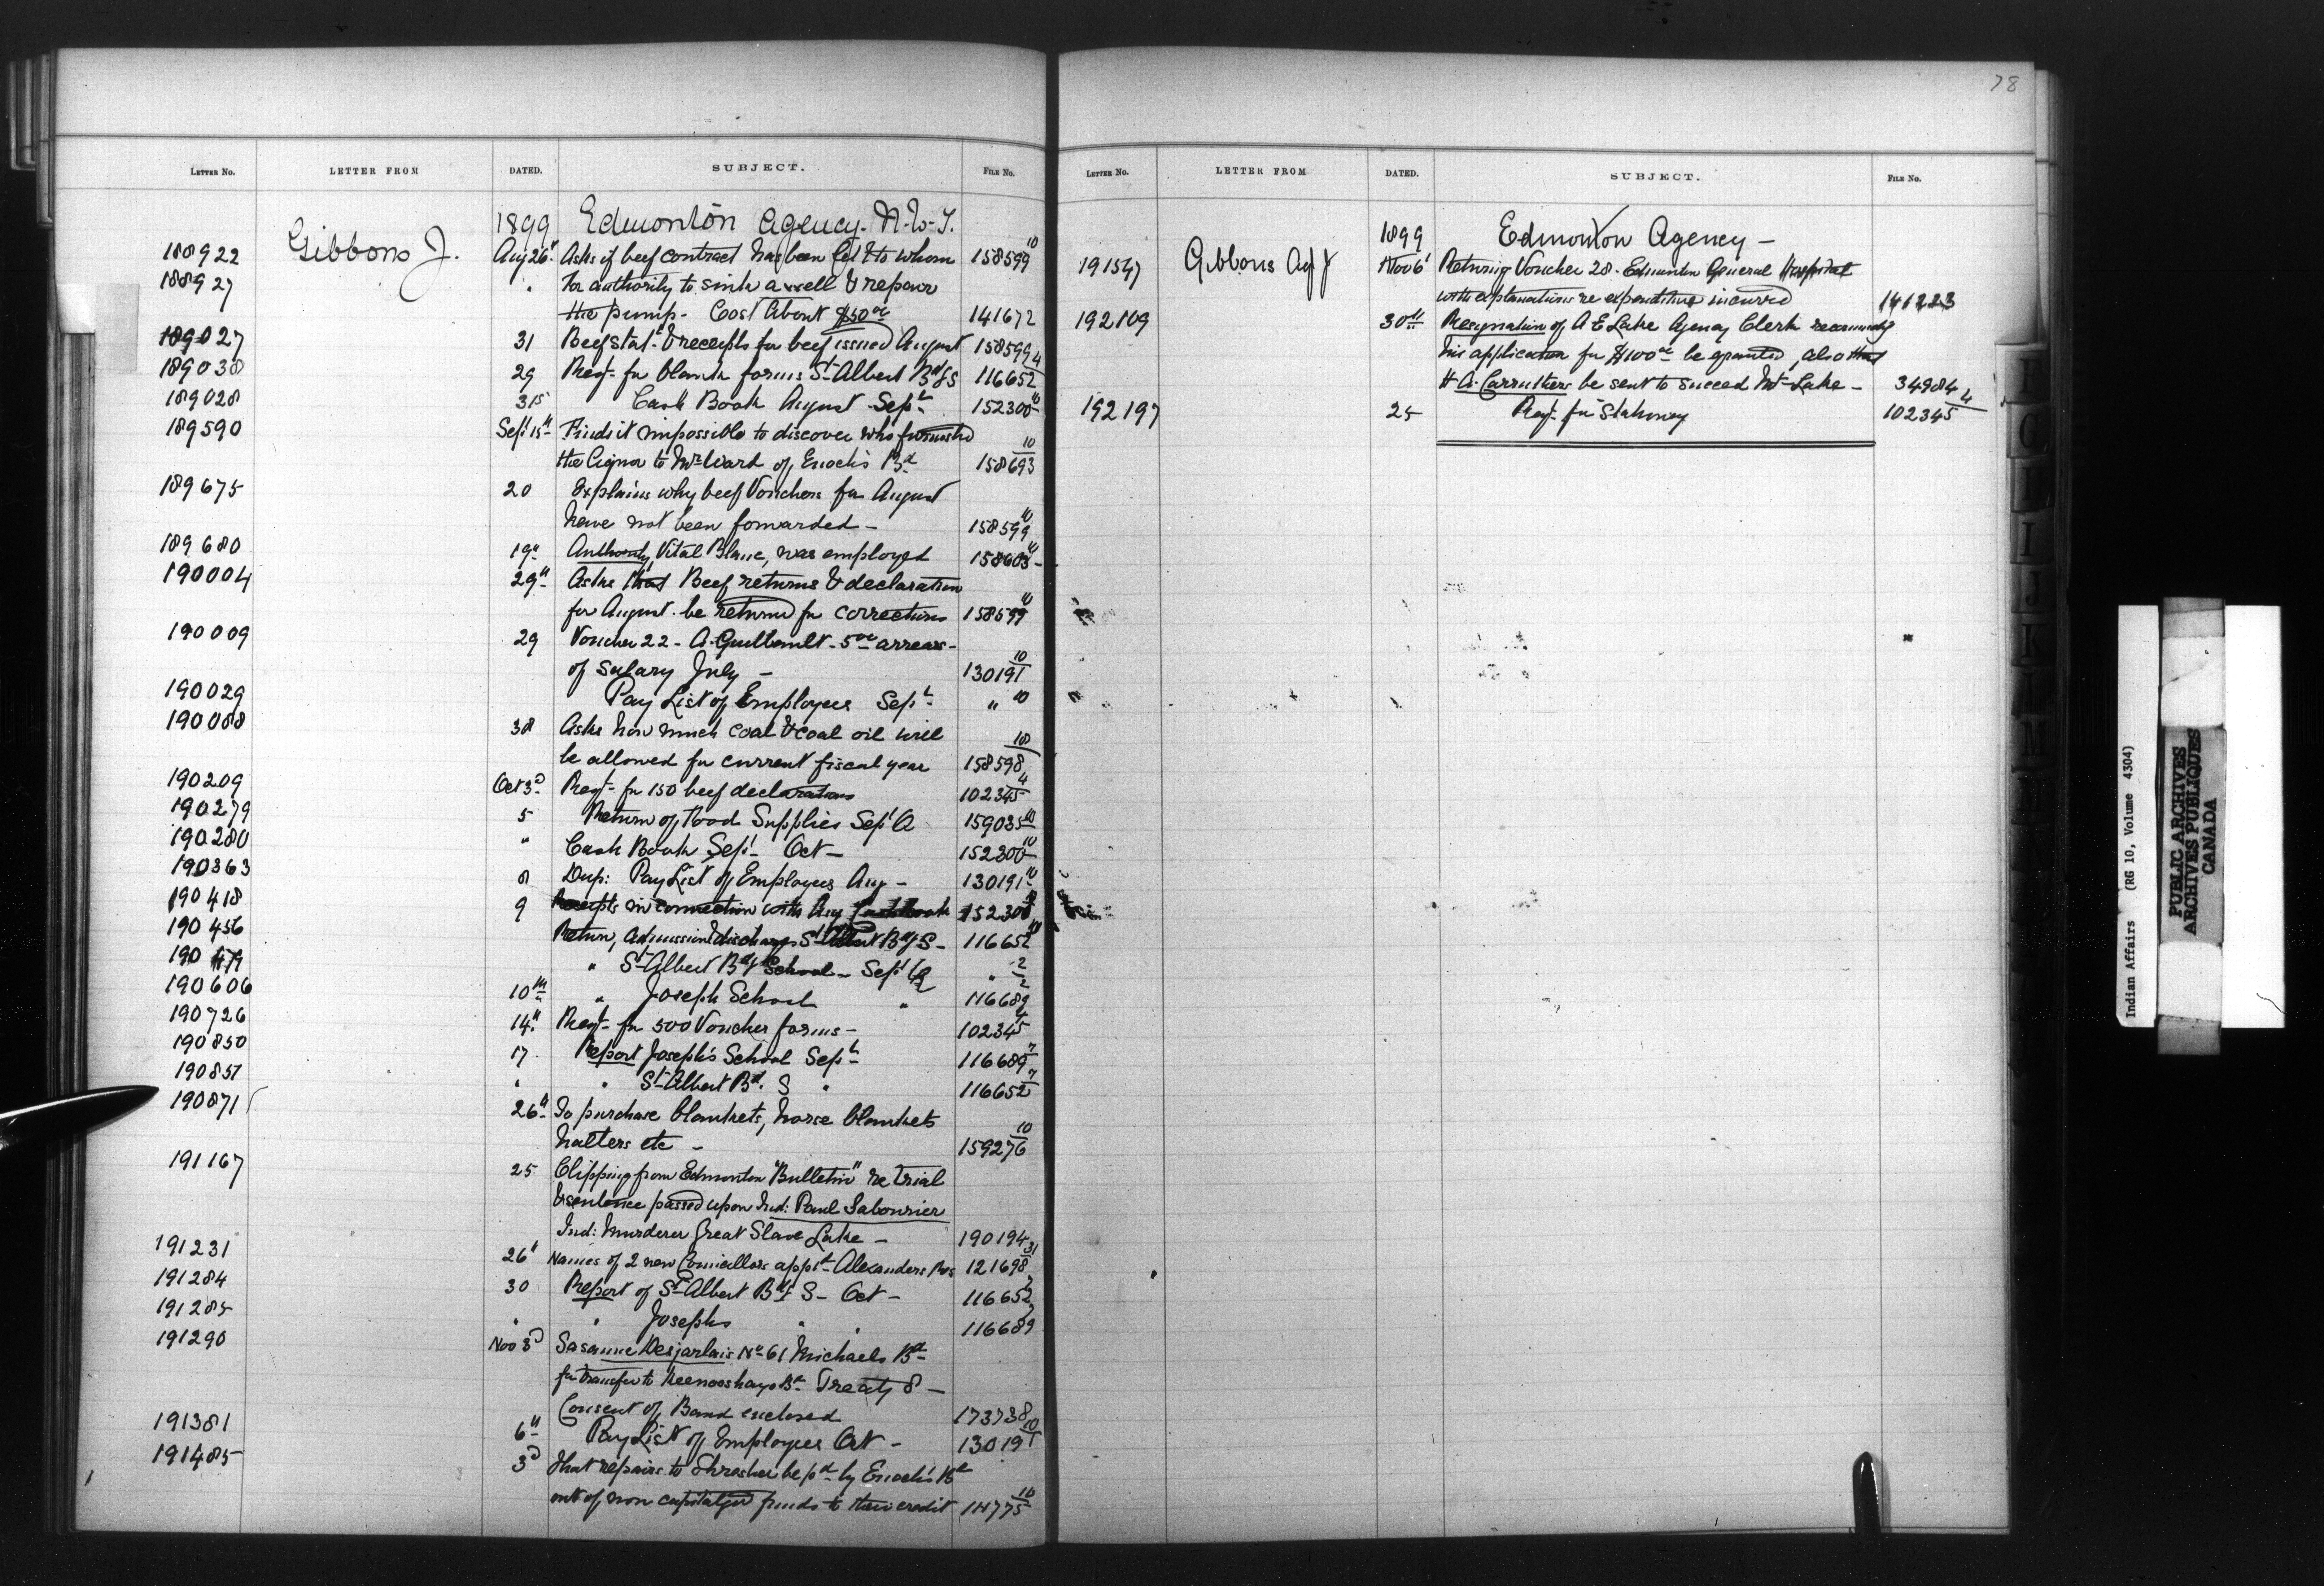 78
LETTER NO. LETTER FROM DATED. SUBJECT. FILE NO.
1899 Edmonton Agency. N.W.T.
188922 Gibbons J. Aug 26" Asks if beef contract has been let & to whom 158599 10
188927 " For authority to sink a well & repair
the pump - Cost About $50 00 141672
189027 31 Beef Stat. & receipts for beef issued August 158599 4
189030 29 Reqt. for blank forms St Albert Bdg S 116652
189028 31st Cash Book August Sept 152300 10
189590 Sept 15" Finds it impossible to discover who furnished
the liquor to Mr Ward of Enoch's Bd 158693 10
189675 20 Explains why beef Vouchers for August
have not been forwarded - 158599 10
189680 19" Authority, Vital Blanc, was employed 158603
190004 29" Asks that Beef returns & declaration
for August be returned for corrections 158599 10
190009 29 Voucher 22 - A. Guilbault - 5 00 arrears -
of Salary July - 130191 10
190029 Pay List of Employees Sept " 10
190088 30 Asks how much coal & coal oil will
be allowed for current fiscal year 158598 10
190209 Oct 3d Reqt. for 150 beef declarations 102345 4
190279 5 Return of Food Supplies Sept Q 159035 10
190280 " Cash Book Sept - Oct - 152300 10
190363 8 Dup: Pay List of Employees Aug - 130191 10
190418 9 Receipts in connection with Aug Cash Book 152300 10
190456 Return, admission & discharge St Albert Bdg S - 116652
190479 " St Albert Bdg School - Sept Q " 2
190606 10th " Joseph School " 116689 2
190726 14" Reqt. for 500 Voucher forms - 102345 4
190850 17 Report Joseph's School Sept 116689 7
190851 " " St Albert Bd. S " 116652 7
190871 26" To purchase blankets, horse blankets
halters etc - 159276 10
191167 25 Clipping from Edmonton "Bulletin" re trial
& sentence passed upon Ind: Paul Sabourier
Ind: Murderer Great Slave Lake - 190194
191231 26" Names of 2 new Councillors appt Alexanders Res 121698 31
191284 30 Report of St Albert Bdg S - Oct - 116652 7
191285 " " Josephs " " 116689 7
191290 Nov 3d Susanne Desjarlais No 61 Michaels Bd
for transfer to Keenooshayo Bd Treaty 8 -
Consent of Band enclosed 173738
191381 6" Pay List of Employees Oct - 130191 10
191485 3d That repairs to thresher be pd by Enoch's Bd
out of non capitalized funds to their credit 114775 10
LETTER NO. LETTER FROM DATED. SUBJECT. FILE NO.
1899 Edmonton Agency -
191547 Gibbons Agt J Nov 6 Returning Voucher 28 - Edmonton General Hospital
with explanations re expenditure incurred 141223
192109 30" Resignation of A E Lake Agency Clerk recommendg
his application for $100 00 be granted, also that
H A. Carruthers be sent to succeed Mr Lake - 34984
192197 25 Reqt. for Stationery 102345 4
Indian Affairs (RG 10, Volume 4304)
PUBLIC ARCHIVES
ARCHIVES PUBLIQUES
CANADA